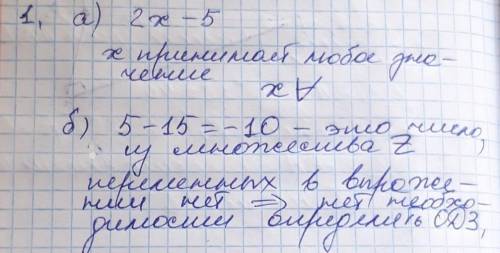 1, а) 2x - 5
x принимает любое зна-
чение
x∀
б) 5 - 15 = -10 - это число,
из множества Z
переменных в выраже-
нии нет ⇒ нет необхо-
димости определять ОДЗ,